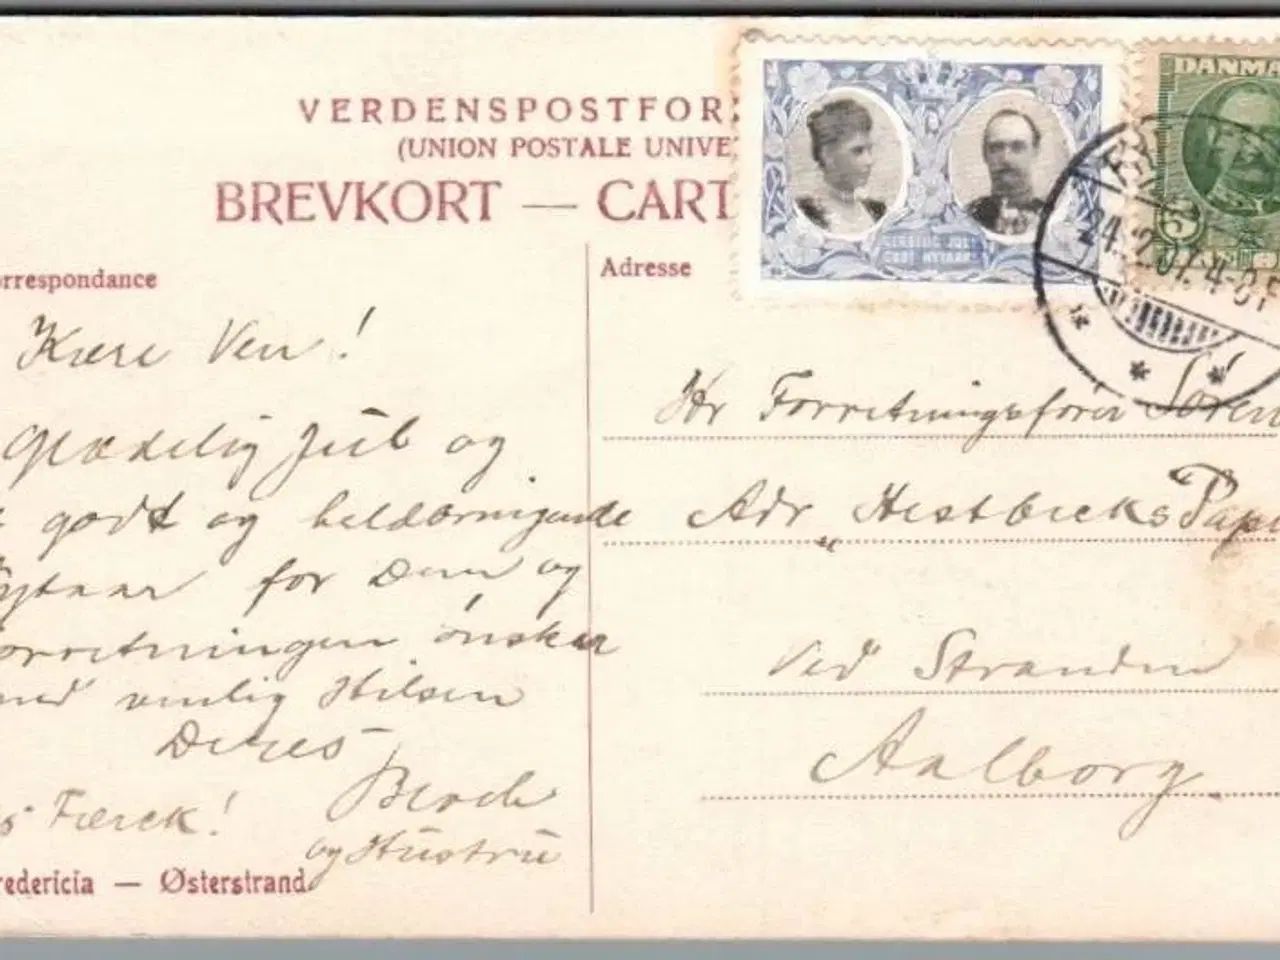 VERDENSPOSTFOR
(UNION POSTALE UNIVE
BREVKORT — CART
orrespondance
Kære Ven!
Glædelig Jul og
godt og velsignende
Nytaar for Dem og
orretningen ønsker
med venlig Hilsen
Deres
Bloch
og Hustru
redericia — Østerstrand
Adresse
Hr Forretningsfører Søren
Adr Hestbecks Papi
Ved Stranden
Aalborg
DANMA
5
GLÆDELIG JUL
GODT NYTAAR
24.12.07. 4-5 F